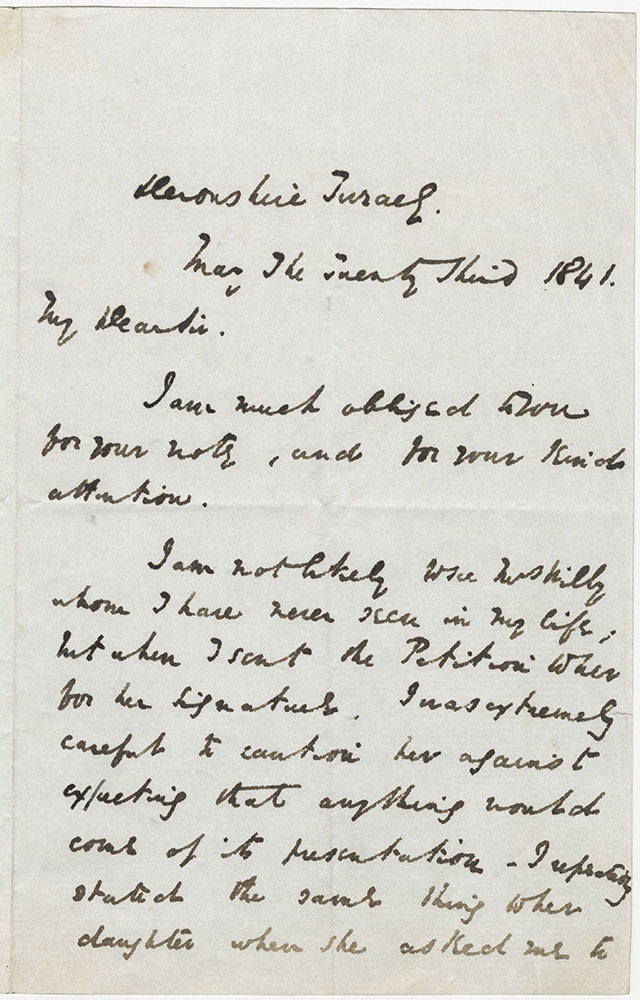 Devonshire Terrace.
May The Twenty Third 1841.
My Dear Sir.
I am much obliged to you
for your note, and for your kind
attention.
I am not likely to see
whom I have never seen in my life;
but when I sent the Petition to her
for her signature. I was extremely
careful to caution her against
expecting that anything would
come of its presentation - I repeatedly
stated the same thing to her
daughter when she asked me to